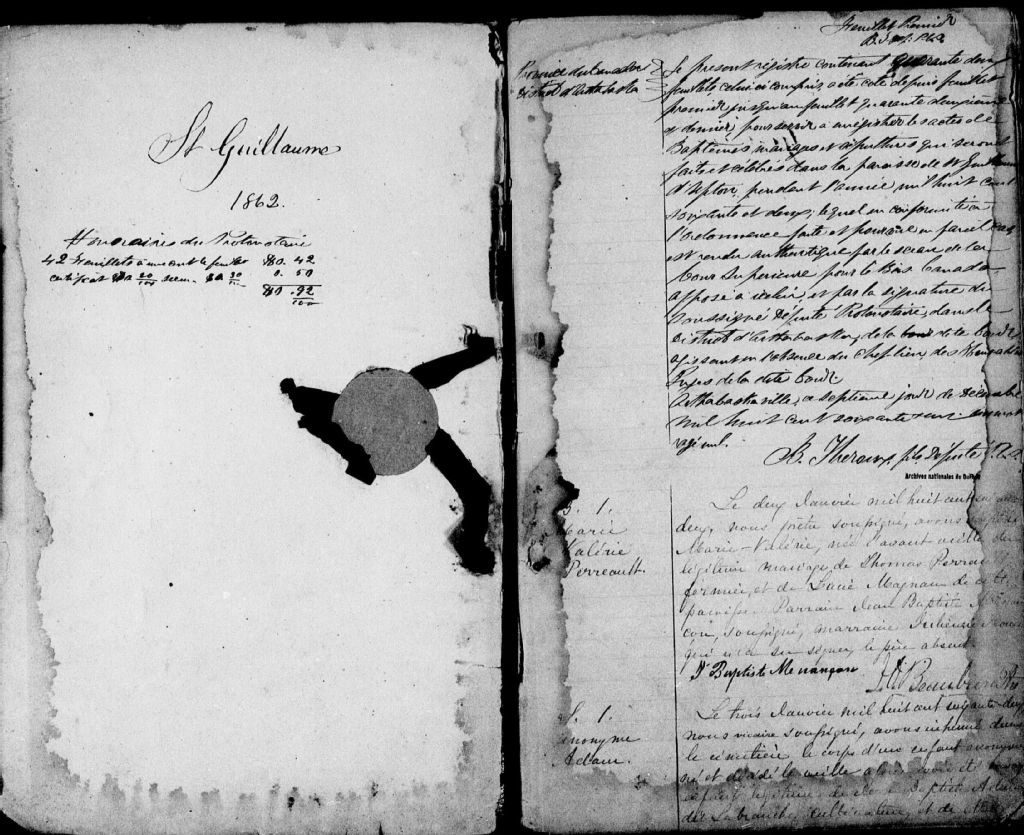 St Guillaume
1862.
Honoraires du Protonotaire
42 feuillets à un cent le feuillet $0. 42
certificat 20/100 sceau 30/100 0. 50
$0 .92/100
Feuillet Premier
Province du Canada
District d'Arthabaska
Le présent régistre contenant quarante deux
feuillets celui ci compris, a été coté depuis feuillet
premier jusqu'au feuillet quarante deuxième
& dernier pour servir à enrégistrer les actes de
Baptêmes, mariages et sépultures qui seront
faits et célébrés dans la paroisse de St Guillaume
d'Upton, pendant l'année mil huit cent
soixante et deux, lequel en conformité à
l'ordonnance faite et pourvue en pareil cas
est rendu authentique par le sceau de la
Cour Supérieure pour le Bas Canada
apposé à icelui, et par la signature du
soussigné Député Protonotaire, dans le
District d'Arthabaska, de la dite Cour
agissant en l'absence du Chef lieu des Honorables
Juges de la dite Cour.
Arthabaskaville, ce septième jour de Décembre
mil huit cent soixante & un
Archives nationales du Québec
B. 1.
Marie
Valérie
Perreault.
Le deux Janvier mil huit cent soixante
deux, nous prêtre soussigné, avons baptisé
Marie-Valérie, née l'avant veille du
légitime mariage de Thomas Perreault
fermier, et de Lucie Magnan de cette
paroisse. Parrain Jean Baptiste Menan
con, soussigné, marraine
qui n'a su signer, le père absent.
Jn Baptiste Menançon
S. 1.
anonyme
Adam.
Le trois Janvier mil huit cent soixante-deux
nous vicaire soussigné, avons inhumé dans
le cimetière le corps d'un enfant anonyme
né et décédé la veille
enfant légitime de Jean Baptiste Adam
dit Labranche, cultivateur, et de